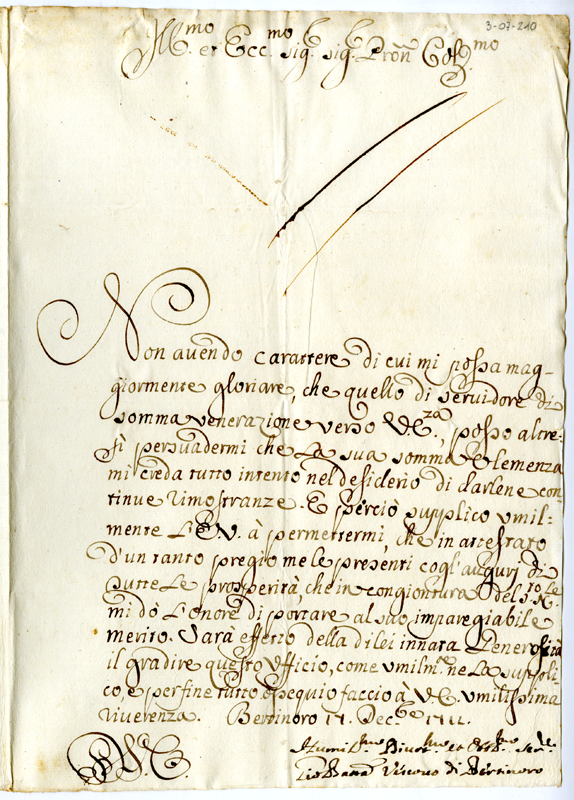 3-07-210
Ill.mo et Ecc.mo Sig. Sig. Pron Col.mo
Non avendo carattere di cui mi possa mag-
giormente gloriare, che quello di servidore di
somma venerazione verso V.E.za, posso altre-
sì persuadermi che La sua somma Clemenza
mi creda tutto intento nel desiderio di darlene con
tinue rimostranze. E perciò supplico umil-
mente L'E.V. à permettermi, che in attestato
d'un tanto pregio me le presenti cogl'auguri di
tutte Le prosperità, che in congiontura del S.to Le
mi dò L'onore di portare al suo impareggiabile
merito. Sarà effetto della di lei innata Generosità
il gradire questo Ufficio, come umilm.te ne La suppli
co, e per fine tutto ossequio faccio à V.E. umilissima
riverenza. Bertinoro 17. Dec.bre
V.E.
Vescovo di Bertinoro